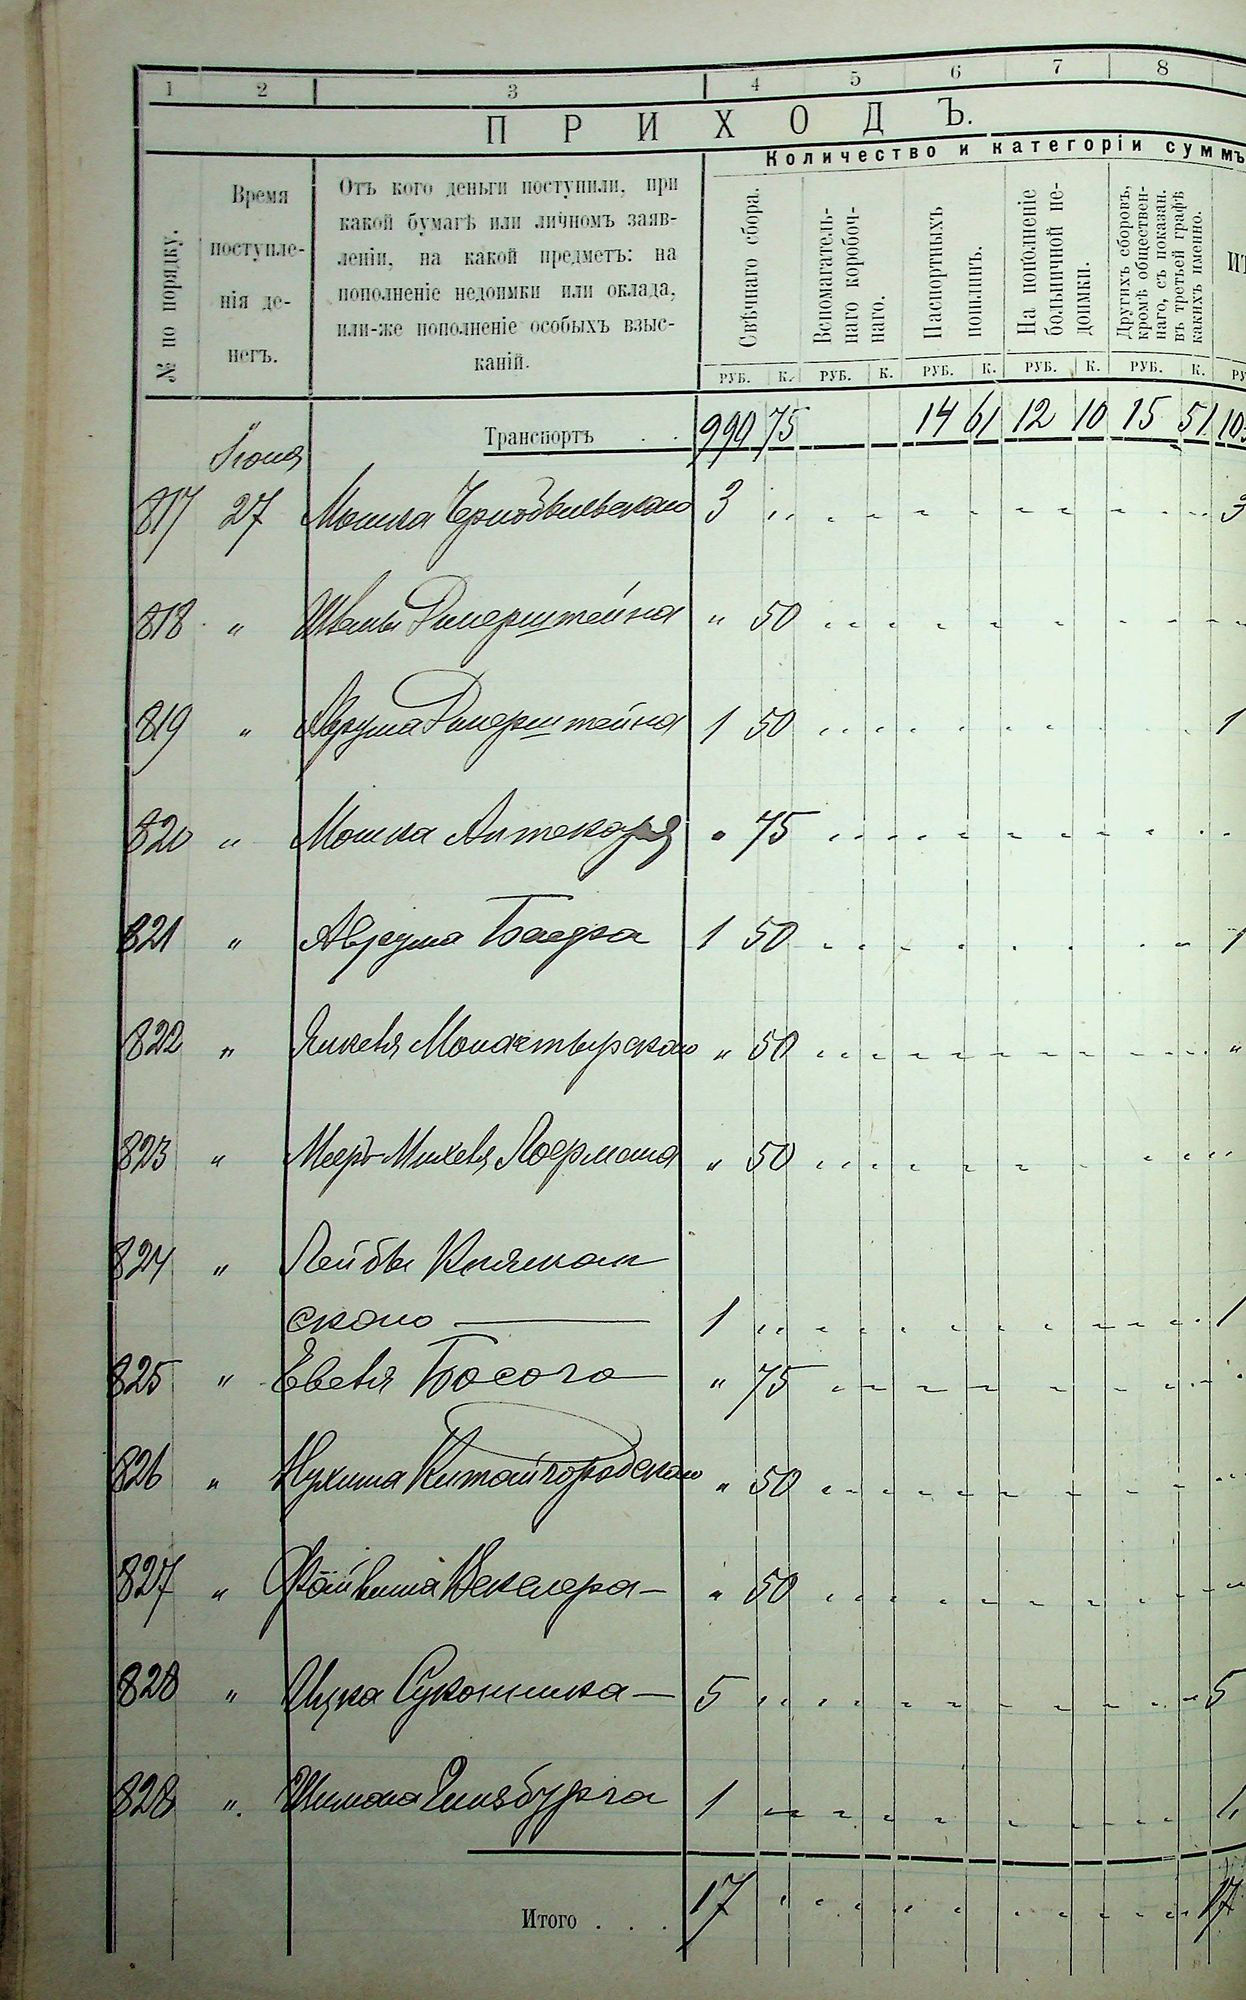 1 2 3 4 5 6 7 8
ПРИХОДЪ.
Количество и категоріи суммъ
№ по порядку.
Время поступле-нія де-негъ.
Отъ кого деньги поступили, при
какой бумагѣ или личномъ заяв-
леніи, на какой предметъ: на
пополненіе недоимки или оклада,
или-же пополненіе особыхъ взыс-
каній.
Свѣчнаго сбора.
Вспомагатель-
наго коробоч-
наго.
Паспортныхъ
пошлинъ.
На пополненіе
больничной не-
доимки.
Другихъ сборовъ,
кромѣ обществен-
наго, съ показан.
въ третьей графѣ
какихъ именно.
ИТ
РУБ. К. РУБ. К. РУБ. К. РУБ. К. РУБ. К. РУ
Транспортъ . . 990 75 14 61 12 10 15 51 10
Іюня
817 27 Мошка Чернобыльскаго 3 " 3
818 " Шваны " 50
819 " Аврума 1 50 1
820 " Мошка Аптекаря " 75
821 " Аврума 1 50 1
822 " Янкеля Монастырскаго " 50 "
823 " Меер-Михеля Лоермана " 50
824 " Лейбы
скаго — 1 " 1
825 " Евеля Босого " 75
826 " Нухима Китайгородскаго " 50
827 " Файвиша Векслера — " 50
828 " Ицка Суконника — 5 " 5
828 " Шимона Гинзбурга 1 1
Итого . . . 17 17